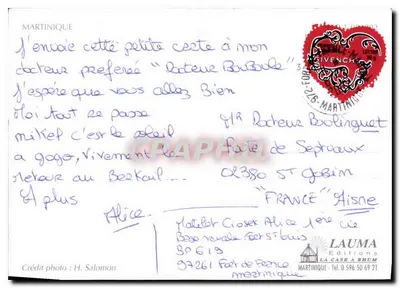 MARTINIQUE
J'envoie cette petite carte à mon
docteur preferée "Docteur BouBoule"
J'espère que vous allez Bien
Moi tout se passe
nikel c'est le soleil
a gogo, Vivement le
retour au Berkail....
A plus
Alice.
GIVENCHY
972-FORT-DE-
MARTINIQUE
M/R Docteur Boulinguet
Faïe de Septvaux
02380 St Gobin
"FRANCE" Aisne
Matelot Closet Alice 1ere cie
Base navale Fort St Louis
BP 619
97261 Fort de France
martinique
Crédit photo : H. Salomon
LAUMA
Editions
LA CASE A RHUM
MARTINIQUE - Tél. 0 596 50 69 21